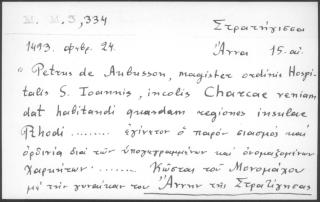 M. M. 3, 334
Στρατήγισσα
1493. φεβρ. 24.
Άννα 15. αἰ.
"Petrus de Aubusson, magister ordinis Hospi-
talis S. Ioannis, incolis Charcae veniam
dat habitandi quandam regiones insulae
Rhodi ......... ἐγίνετον ὁ παρὸν στασμὸς καὶ
ὀρδινία διὰ τῶν ὑπογεγραμμένων καὶ ὀνομαζομένων
Χαρκήτων ........ Κώστας τοῦ Μονομάχου
μὲ τὴν γυναῖκαν του Ἄννην τῆς Στρατίγησας